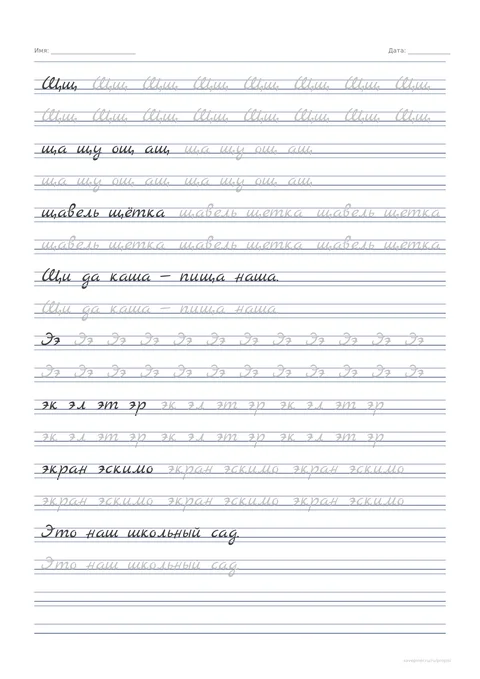 Имя: Дата:
Щщ Щщ Щщ Щщ Щщ Щщ Щщ Щщ
Щщ Щщ Щщ Щщ Щщ Щщ Щщ Щщ
ща щу ощ ащ ща щу ощ ащ
ща щу ощ ащ ща щу ощ ащ
щавель щётка щавель щетка щавель щетка
щавель щетка щавель щетка щавель щетка
Щи да каша – пища наша.
Щи да каша – пища наша
Ээ Ээ Ээ Ээ Ээ Ээ Ээ Ээ Ээ Ээ Ээ Ээ
Ээ Ээ Ээ Ээ Ээ Ээ Ээ Ээ Ээ Ээ Ээ Ээ
эк эл эт эр эк эл эт эр эк эл эт эр
эк эл эт эр эк эл эт эр эк эл эт эр
экран эскимо экран эскимо экран эскимо
экран эскимо экран эскимо экран эскимо
Это наш школьный сад.
Это наш школьный сад